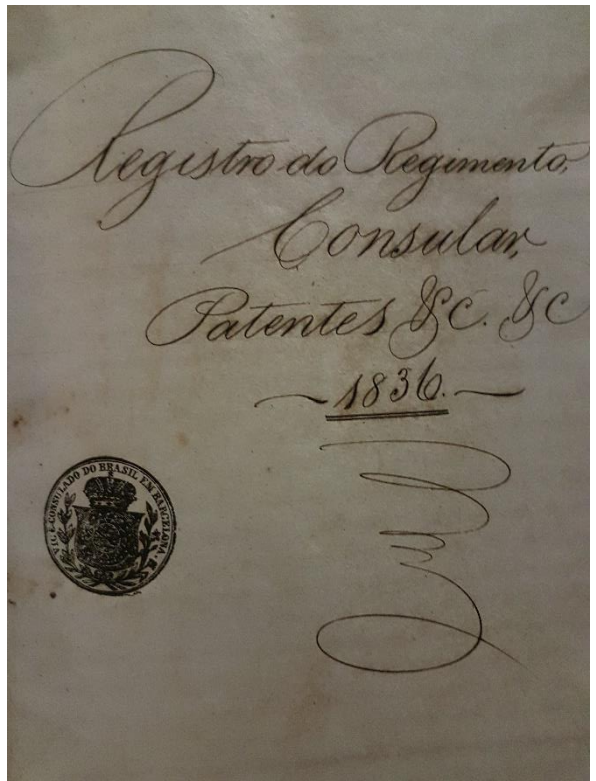 Registro do Regimento,
Consular,
Patentes &c. &c
1836.
VICE-CONSULADO DO BRASIL EM BARCELONA